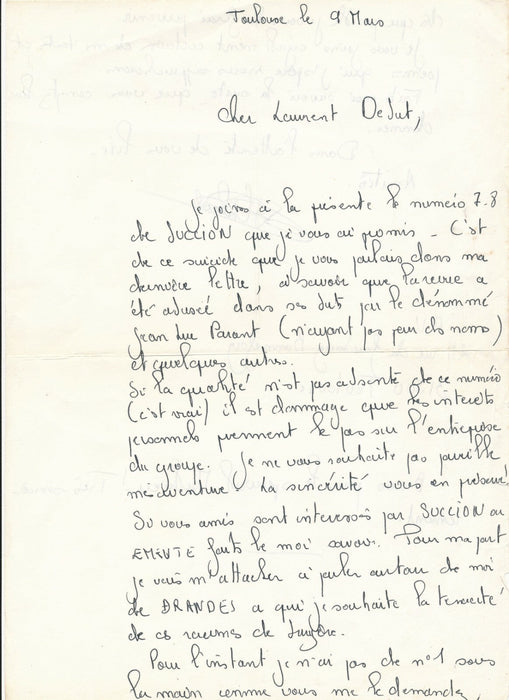 Toulouse le 9 Mars
Cher Laurent Debut,
Je joins à la présente le numéro 7.8
de SUCCION que je vous ai promis _ C'est
de ce suicide que je vous parlais dans ma
dernière lettre, à savoir que la revue a
été abusée dans ses buts par le dénommé
Jean Luc Parant (n'ayons pas peur des noms)
et quelques autres.
Si la qualité n'est pas absente de ce numéro
(c'est vrai) il est dommage que les intérêts
personnels prennent le pas sur l'entreprise
du groupe. Je ne vous souhaite pas pareille
mésaventure _ La sincérité vous en préserve!
Si vous amis sont interessés par SUCCION ou
EMEUTE faites le moi savoir. Pour ma part
je vais m'attacher à parler autour de moi
de BRANDES a qui je souhaite la tenacité
de ces racines de bruyère.
Pour l'instant je n'ai pas de n°1 sous
la main comme vous me le demandez,